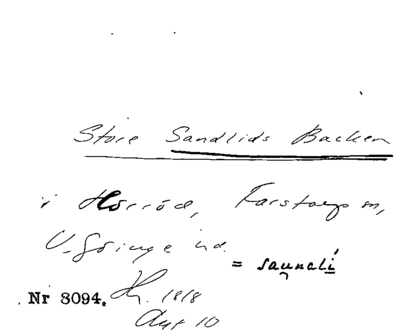 Store Sandlids Backen
i Hörröd, Farstorps sn,
V. Göinge hd.
= sau̯nalí
Nr 8094. 1818
Akt 10